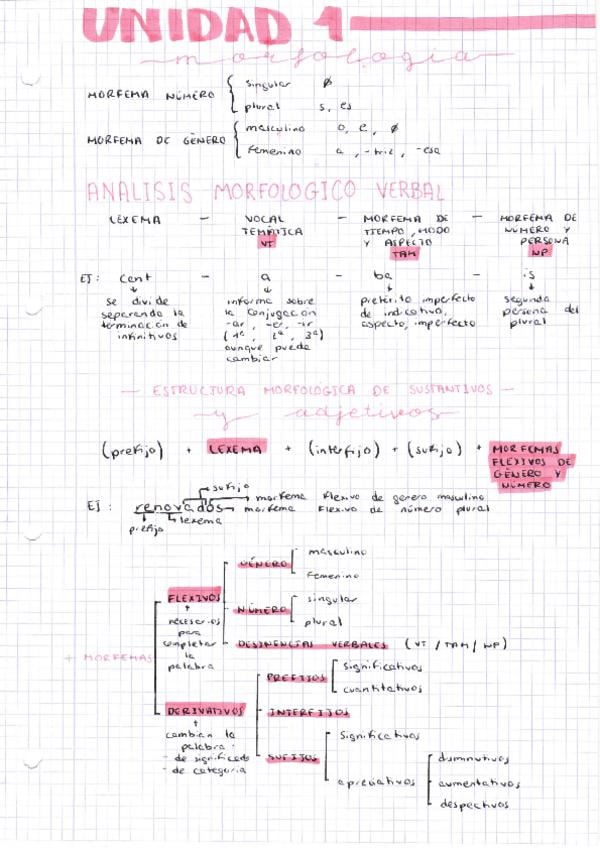 UNIDAD 1
morfología
MORFEMA NÚMERO { singular ∅
plural s, es
MORFEMA DE GÉNERO { masculino o, e, ∅
femenino a, -triz, -esa
ANALISIS MORFOLOGICO VERBAL
LEXEMA - VOCAL TEMÁTICA VT - MORFEMA DE TIEMPO, MODO Y ASPECTO TAM - MORFEMA DE NÚMERO Y PERSONA NP
EJ: cant - a - ba - is
se divide separando la terminación de infinitivos
informa sobre la conjugación -ar, -er, -ir (1ª, 2ª, 3ª) aunque puede cambiar
pretérito imperfecto de indicativo, aspecto, imperfecto
segunda persona del plural
- ESTRUCTURA MORFOLÓGICA DE SUSTANTIVOS -
y adjetivos
(prefijo) + LEXEMA + (interfijo) + (sufijo) + MORFEMAS FLEXIVOS DE GÉNERO Y NÚMERO
sufijo
EJ: renovados
morfema flexivo de genero masculino
morfema flexivo de número plural
lexema
prefijo
+ MORFEMAS
FLEXIVOS
necesarios
para
completar
la
palabra
GÉNERO
masculino
femenino
NÚMERO
singular
plural
DESINENCIAS VERBALES (VT / TAM / NP)
DERIVATIVOS
cambian la
palabra
- de significado
- de categoria
PREFIJOS
significativos
cuantitativos
INTERFIJOS
SUFIJOS
significativos
apreciativos
diminutivos
aumentativos
despectivos